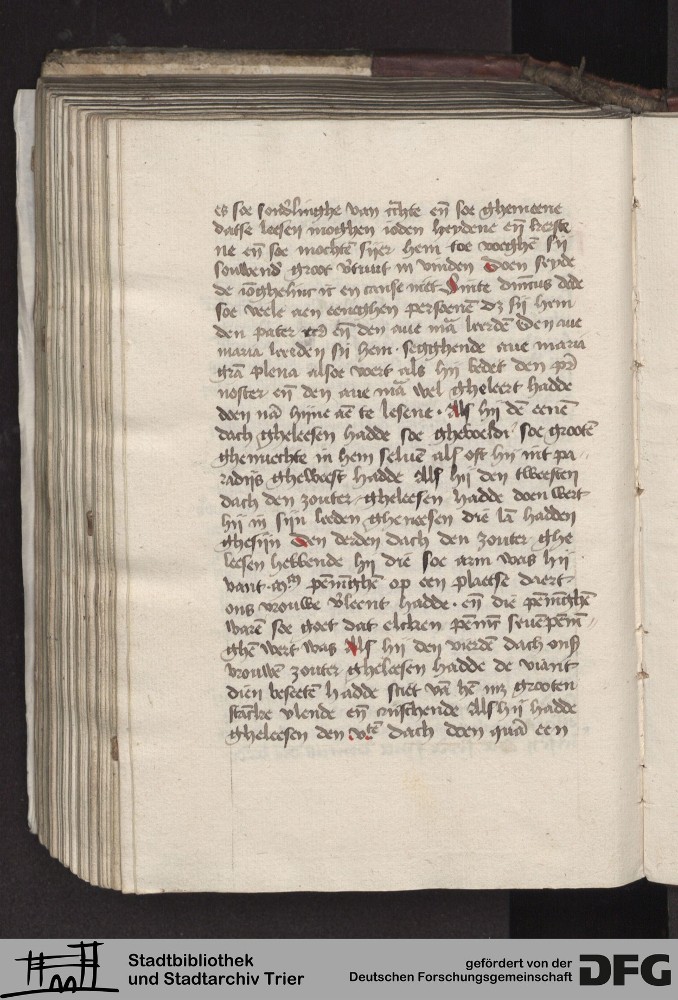 es soe sond'linghe van r̄hte en̄ soe ghemeene
datse leesen moghen ioden heydene en̄ kerste
ne en̄ soe mochtē sijer hem toe voeghē sij
souwend' groot v'truut in vinden Doen seyde
de iōghelinc ic en canse niet Sinte dnīcus dede
soe veele aen eeneghen persoenē dz sij hem
den pater en̄ den aue mā leerdē Den aue
maria leerden sij hem · segghende aue maria
grā plena alsoe voert als hij bedet den pr̄
noster en̄ den aue mā wel gheleert hadde
doen nā hijne aē te lesene · Als hij dē eenē
dach gheleesen hadde soe ghevoeldi soe grootē
ghenuechte in hem seluē als oft hij int pa
radijs gheweest hadde Als hij den tweesten
dach den zouter gheleesen hadde doen wert
hij in sijn leeden ghenesen die lā hadden
ghesijn Den derden dach den zouter ghe
leesen hebbende hij die soe arm was hij
vant · pēnīghē op een plaetse daert
ons vrouwe v'leent hadde · en̄ die pēnīghē
warē soe goet dat elcken pēnīc seuē pēnī
ghē wert was Als hij den vierdē dach ons
vrouwē zouter gheleesen hadde de viant
dien beseetē hadde sciet vā hē mz grooten
stācke vlende en̄ criischende Als hij hadde
gheleesen den vte dach doen quā een
Stadtbibliothek
und Stadtarchiv Trier
gefördert von der
Deutschen Forschungsgemeinschaft
DFG